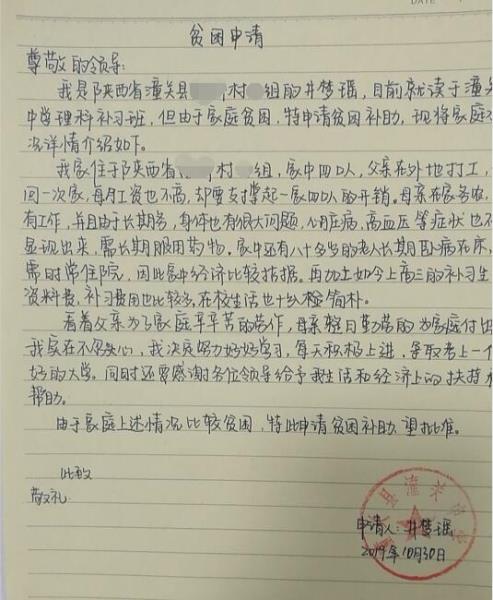 DATE
贫困申请
尊敬的领导:
我是陕西省潼关县 村 组的井梦瑶,目前就读于潼关
中学理科补习班,但由于家庭贫困,特申请贫困补助,现将家庭
况详情介绍如下。
我家住于陕西省 村 组,家中四口人,父亲在外地打工,
回一次家,每月工资也不高,却要支撑起一家四口人的开销。母亲在家务农,
有工作,并且由于长期务,身体也有很大问题,心脏病,高血压等症状也
显现出来,需长期服用药物。家中还有八十多岁的老人长期卧病在床,
需时常住院,因此家中经济比较拮据。再加上如今上高三的补习生
资料费,补习费用也比较多,在校生活也十分检简朴。
看着父亲为了家庭辛辛苦的劳作,母亲整日勤劳的为家庭付出
我实在不忍失心,我决定努力好好学习,每天积极上进,争取考上一个
好的大学。同时还要感谢各位领导给予我生活和经济上的扶持
帮助。
由于家庭上述情况比较贫困,特此申请贫困补助,望批准。
此致
敬礼
申请人:井梦瑶
2019年10月30日
县潼关